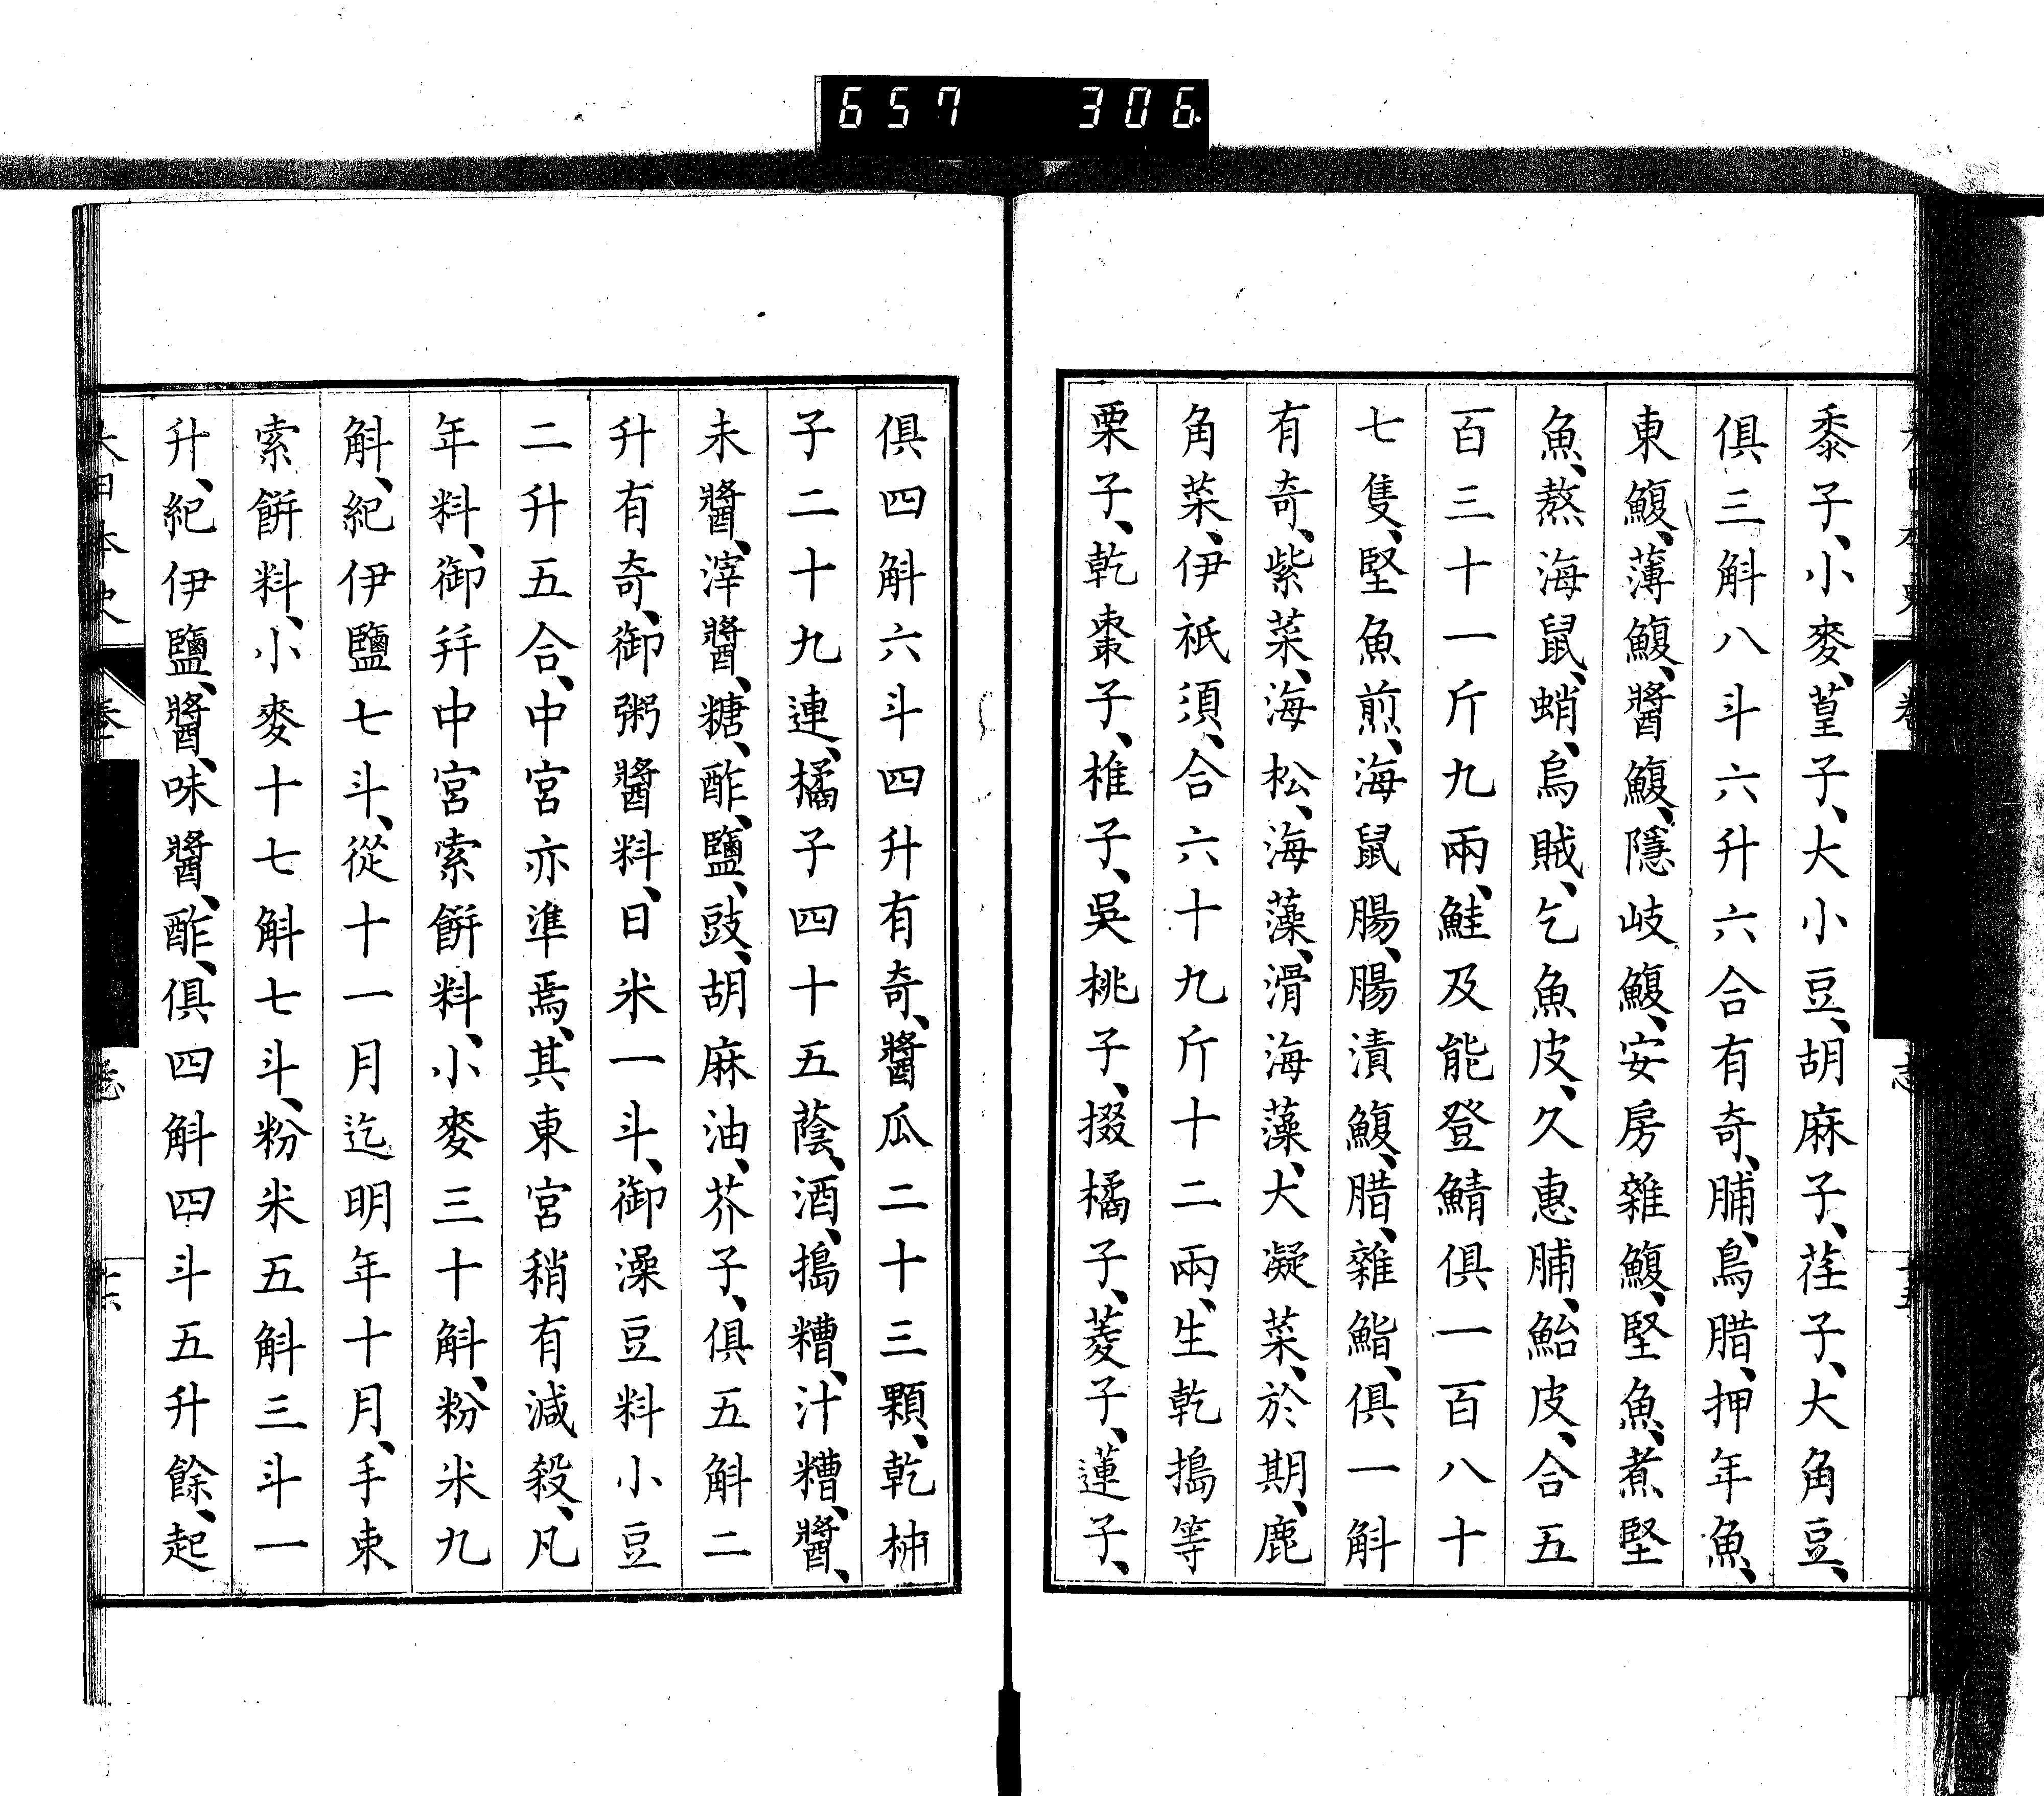 657 306
黍子、小麥、䔛子、大小豆、胡麻子、荏子、大角豆、
俱三斛八斗六升六合有奇、脯、鳥腊、押年魚、
東鰒、薄鰒、醬鰒、隱岐鰒、安房雜鰒、堅魚、煮堅
魚、熬海鼠、蛸、烏賊、乞魚皮、久惠脯、鮐皮、合五
百三十一斤九兩、鮭及能登鯖俱一百八十
七隻、堅魚煎、海鼠腸、腸漬鰒、腊、雜鮨、俱一斛
有奇、紫菜、海松、海藻、滑海藻、大凝菜、於期、鹿
角菜、伊祇須、合六十九斤十二兩、生乾搗等
栗子、乾棗子、椎子、吳桃子、掇橘子、菱子、蓮子、
俱四斛六斗四升有奇、醬瓜二十三顆、乾柿
子二十九連、橘子四十五蔭、酒、搗糟、汁糟、醬、
未醬、滓醬、糖、酢、鹽、豉、胡麻油、芥子、俱五斛二
升有奇、御粥醬料、日米一斗、御澡豆料小豆
二升五合、中宮亦準焉、其東宮稍有減殺、凡
年料、御幷中宮索餅料、小麥三十斛、粉米九
斛、紀伊鹽七斗、從十一月迄明年十月、手束
索餅料、小麥十七斛七斗、粉米五斛三斗一
升、紀伊鹽、醬、味醬、酢、俱四斛四斗五升餘、起
大日本史 卷 志